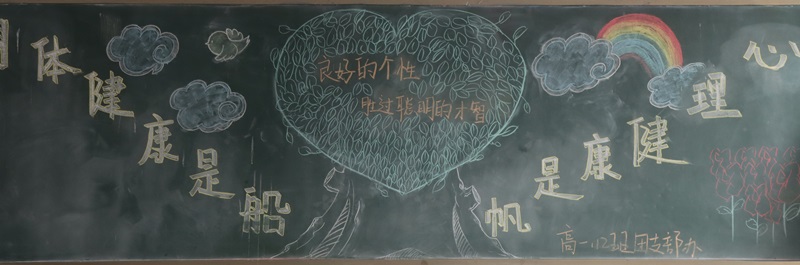 体健康是船
良好的个性
胜过聪明的才智
心理健康是帆
高一12班团支部办